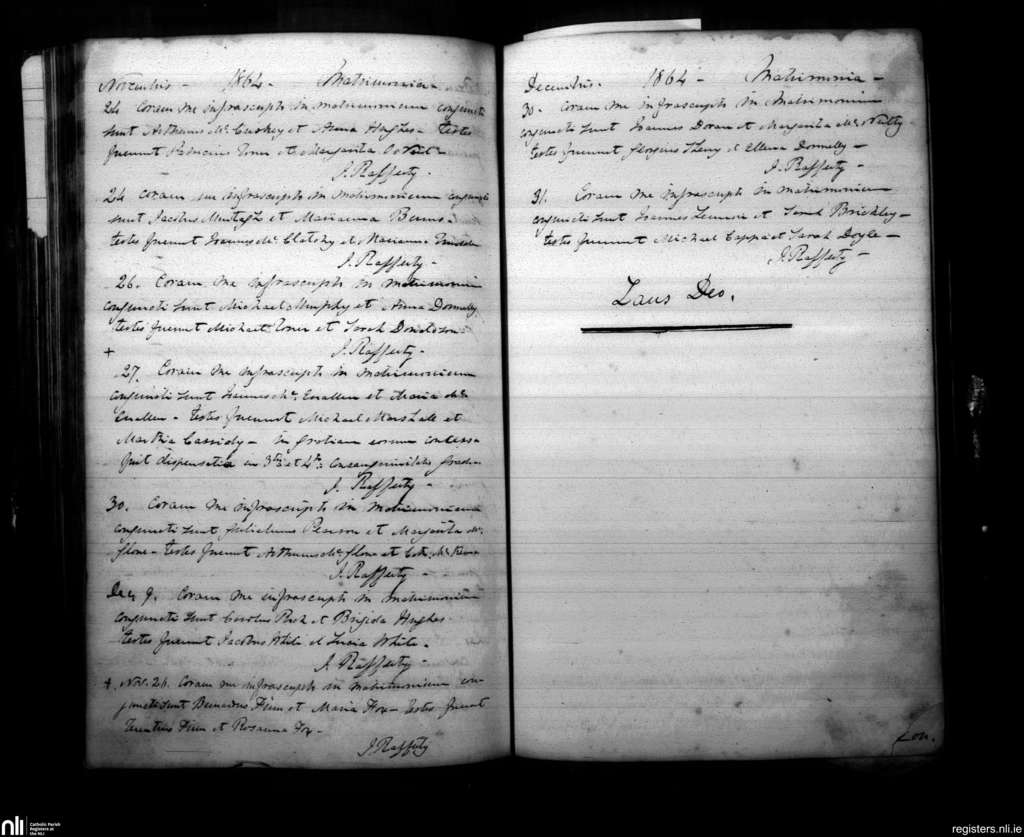 Novembris - 1864 - Matrimonia
24 Coram me infrascripto in matrimonium conjuncti
sunt Arthurus Mc Cuskey et Anna Hughes - testes
fuerunt et Margarita
J. Rafferty.
24 Coram me infrascripto in matrimonium conjuncti
sunt Jacobus Murtagh et Marianna Burns
testes fuerunt Joannes Mc Clatchy et Marianna
J. Rafferty -
26. Coram me infrascripto in matrimonium
conjuncti sunt Michael Murphy et Anna Donnelly
testes fuerunt Michael Toner et Sarah Donaldson
+ J. Rafferty -
27. Coram me infrascripto in matrimonium
conjuncti sunt Joannes Mc et Maria Mc
- testes fuerunt Michael Marshall et
Martha Cassidy - in gratiam eorum concessa
fuit dispensatio in 3tio et 4to consanguinitatis gradu -
J. Rafferty -
30. Coram me infrascripto in matrimonium
conjuncti sunt Gulielmus Pearson et Margarita Mc
Glone - testes fuerunt Arthurus Mc Glone et Cath. Mc
J. Rafferty -
Dec. 9. Coram me infrascripto in matrimonium
conjuncti sunt Carolus et Brigida Hughes
testes fuerunt Jacobus White et Lucia White -
J. Rafferty -
+ Nov. 24. Coram me infrascripto in matrimonium con-
juncti sunt Bernardus Finn et Maria Fox - testes fuerunt
Terentius Finn et Rosanna Fox -
J. Rafferty
Decembris. 1864 - Matrimonia -
30. Coram me infrascripto in Matrimonium
conjuncti sunt Joannes Doran et Margarita Mc Nally
testes fuerunt et Ellena Donnelly -
J. Rafferty -
31. Coram me infrascripto in matrimonium
conjuncti sunt Joannes Lennon et Sarah Brickley -
testes fuerunt Michael Cappa et Sarah Doyle -
J. Rafferty -
Laus Deo.
nli
Catholic Parish
Registers at
the NLI
registers.nli.ie